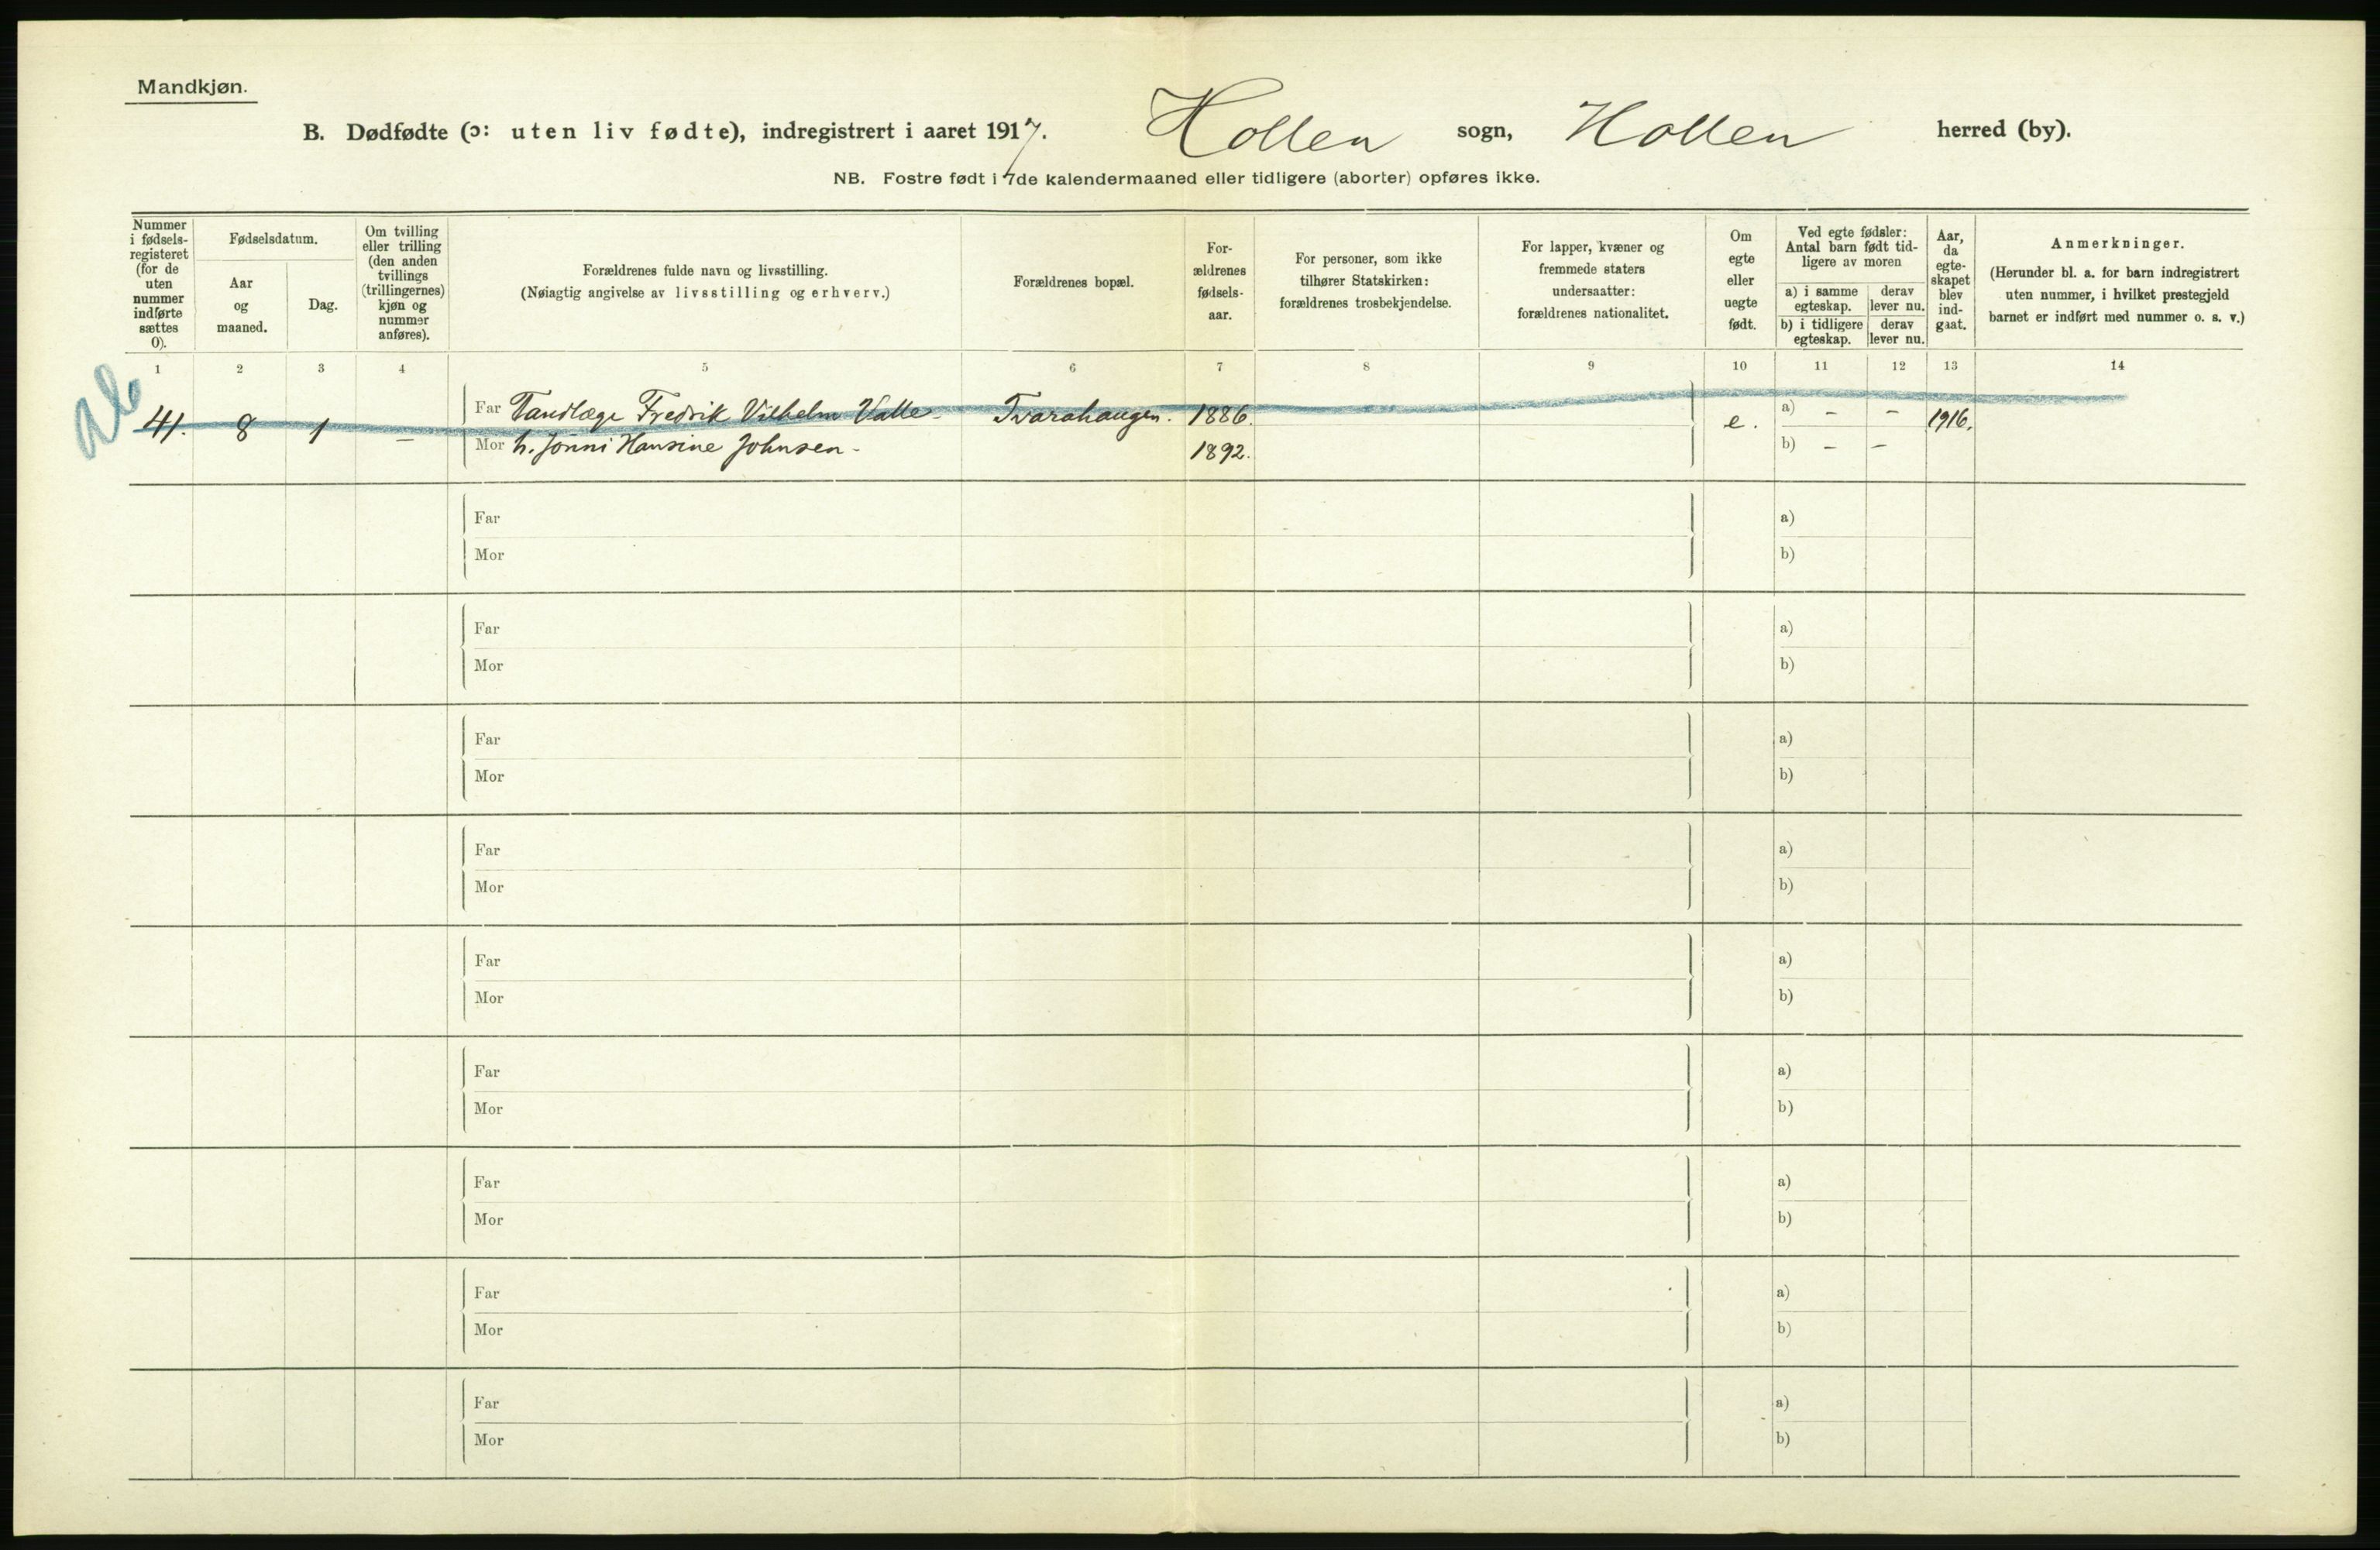 Mandkjøn.
B. Dødfødte (ɔ: uten liv fødte), indregistrert i aaret 1917. Hollen sogn, Hollen herred (by).
NB. Fostre født i 7de kalendermaaned eller tidligere (aborter) opføres ikke.
Nummer i fødsels-registeret (for de uten nummer indførte sættes 0).
Fødselsdatum.
Aar og maaned.
Dag.
Om tvilling eller trilling (den anden tvillings (trillingernes) kjøn og nummer anføres).
Forældrenes fulde navn og livsstilling.
(Nøiagtig angivelse av livsstilling og erhverv.)
Forældrenes bopæl.
For-ældrenes fødsels-aar.
For personer, som ikke tilhører Statskirken: forældrenes trosbekjendelse.
For lapper, kvæner og fremmede staters undersaatter: forældrenes nationalitet.
Om egte eller uegte født.
Ved egte fødsler: Antal barn født tid-ligere av moren
a) i samme egteskap.
derav lever nu.
b) i tidligere egteskap.
derav lever nu.
Aar, da egte-skapet blev ind-gaat.
Anmerkninger.
(Herunder bl. a. for barn indregistrert uten nummer, i hvilket prestegjeld barnet er indført med nummer o. s. v.)
1 2 3 4 5 6 7 8 9 10 11 12 13 14
41. 8 1 — Far Tandlæge Fredrik Vilhelm Valle - 1886. e. a) – – 1916.
Mor h. Jonni Hansine Johnsen - 1892. b) – –
Far a)
Mor b)
Far a)
Mor b)
Far a)
Mor b)
Far a)
Mor b)
Far a)
Mor b)
Far a)
Mor b)
Far a)
Mor b)
Far a)
Mor b)
Far a)
Mor b)